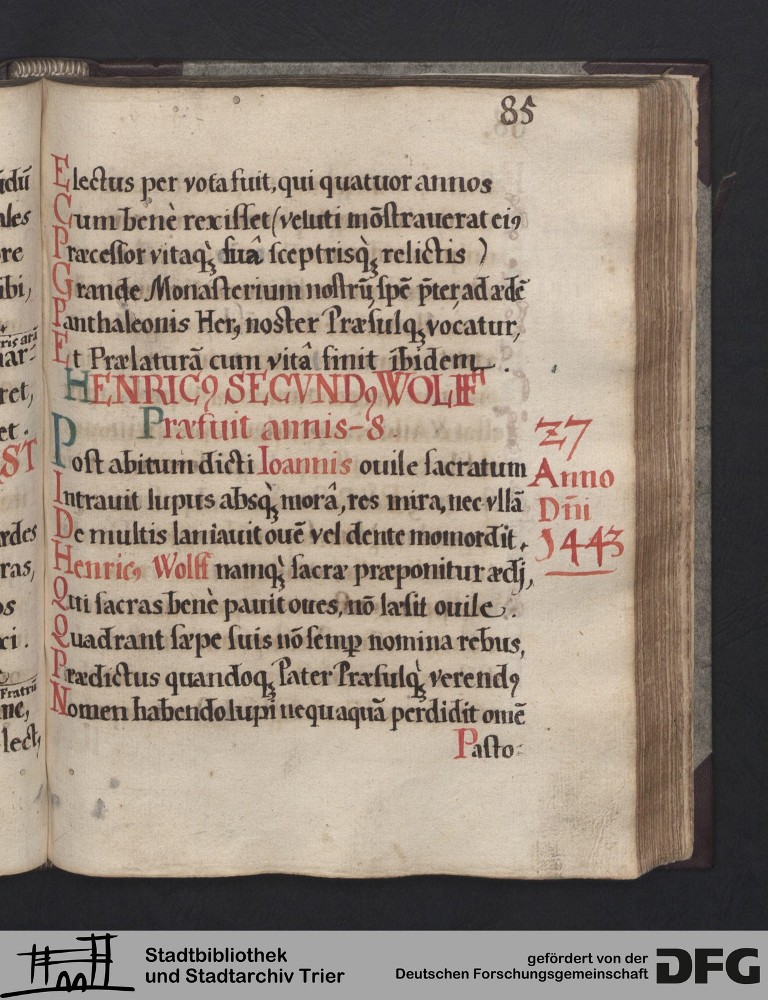 85
Electus per vota fuit, qui quatuor annos
Cum benè rexisset (veluti mõstrauerat eiꝯ
Præcessor vitaqꝫ̀ suâ sceptrisqꝫ̀ relictis )
Grande Monasterium nostrũ, spẽ p̃ter, ad ædẽ
Panthaleonis Her, noster Præsulqꝫ vocatur,
Et Prælaturã cum vitâ finit ibidem.
HENRICꝯ SECVNDꝯ WOLFF
Præfuit annis-8.
27
Post abitum dicti Ioannis ouile sacratum
Anno
Intrauit lupus absqꝫ̀ morâ, res mira, nec vllã
Dñi
De multis laniauit ouẽ vel dente momordit.
1443
Henricꝯ Wolff namqꝫ̀ sacræ præponitur ædj,
Qui sacras benè pauit oues, nõ læsit ouile.
Quadrant sæpe suis nõ semp nomina rebus,
Prædictus quandoqꝫ Pater Præsulqꝫ̀ verendꝯ
Nomen habendo lupi nequaquã perdidit omẽ
Pasto:
ales
ibi,
ret,
et.
ST
ras,
xi.
Fratrũ
Stadtbibliothek
und Stadtarchiv Trier
gefördert von der
Deutschen Forschungsgemeinschaft
DFG